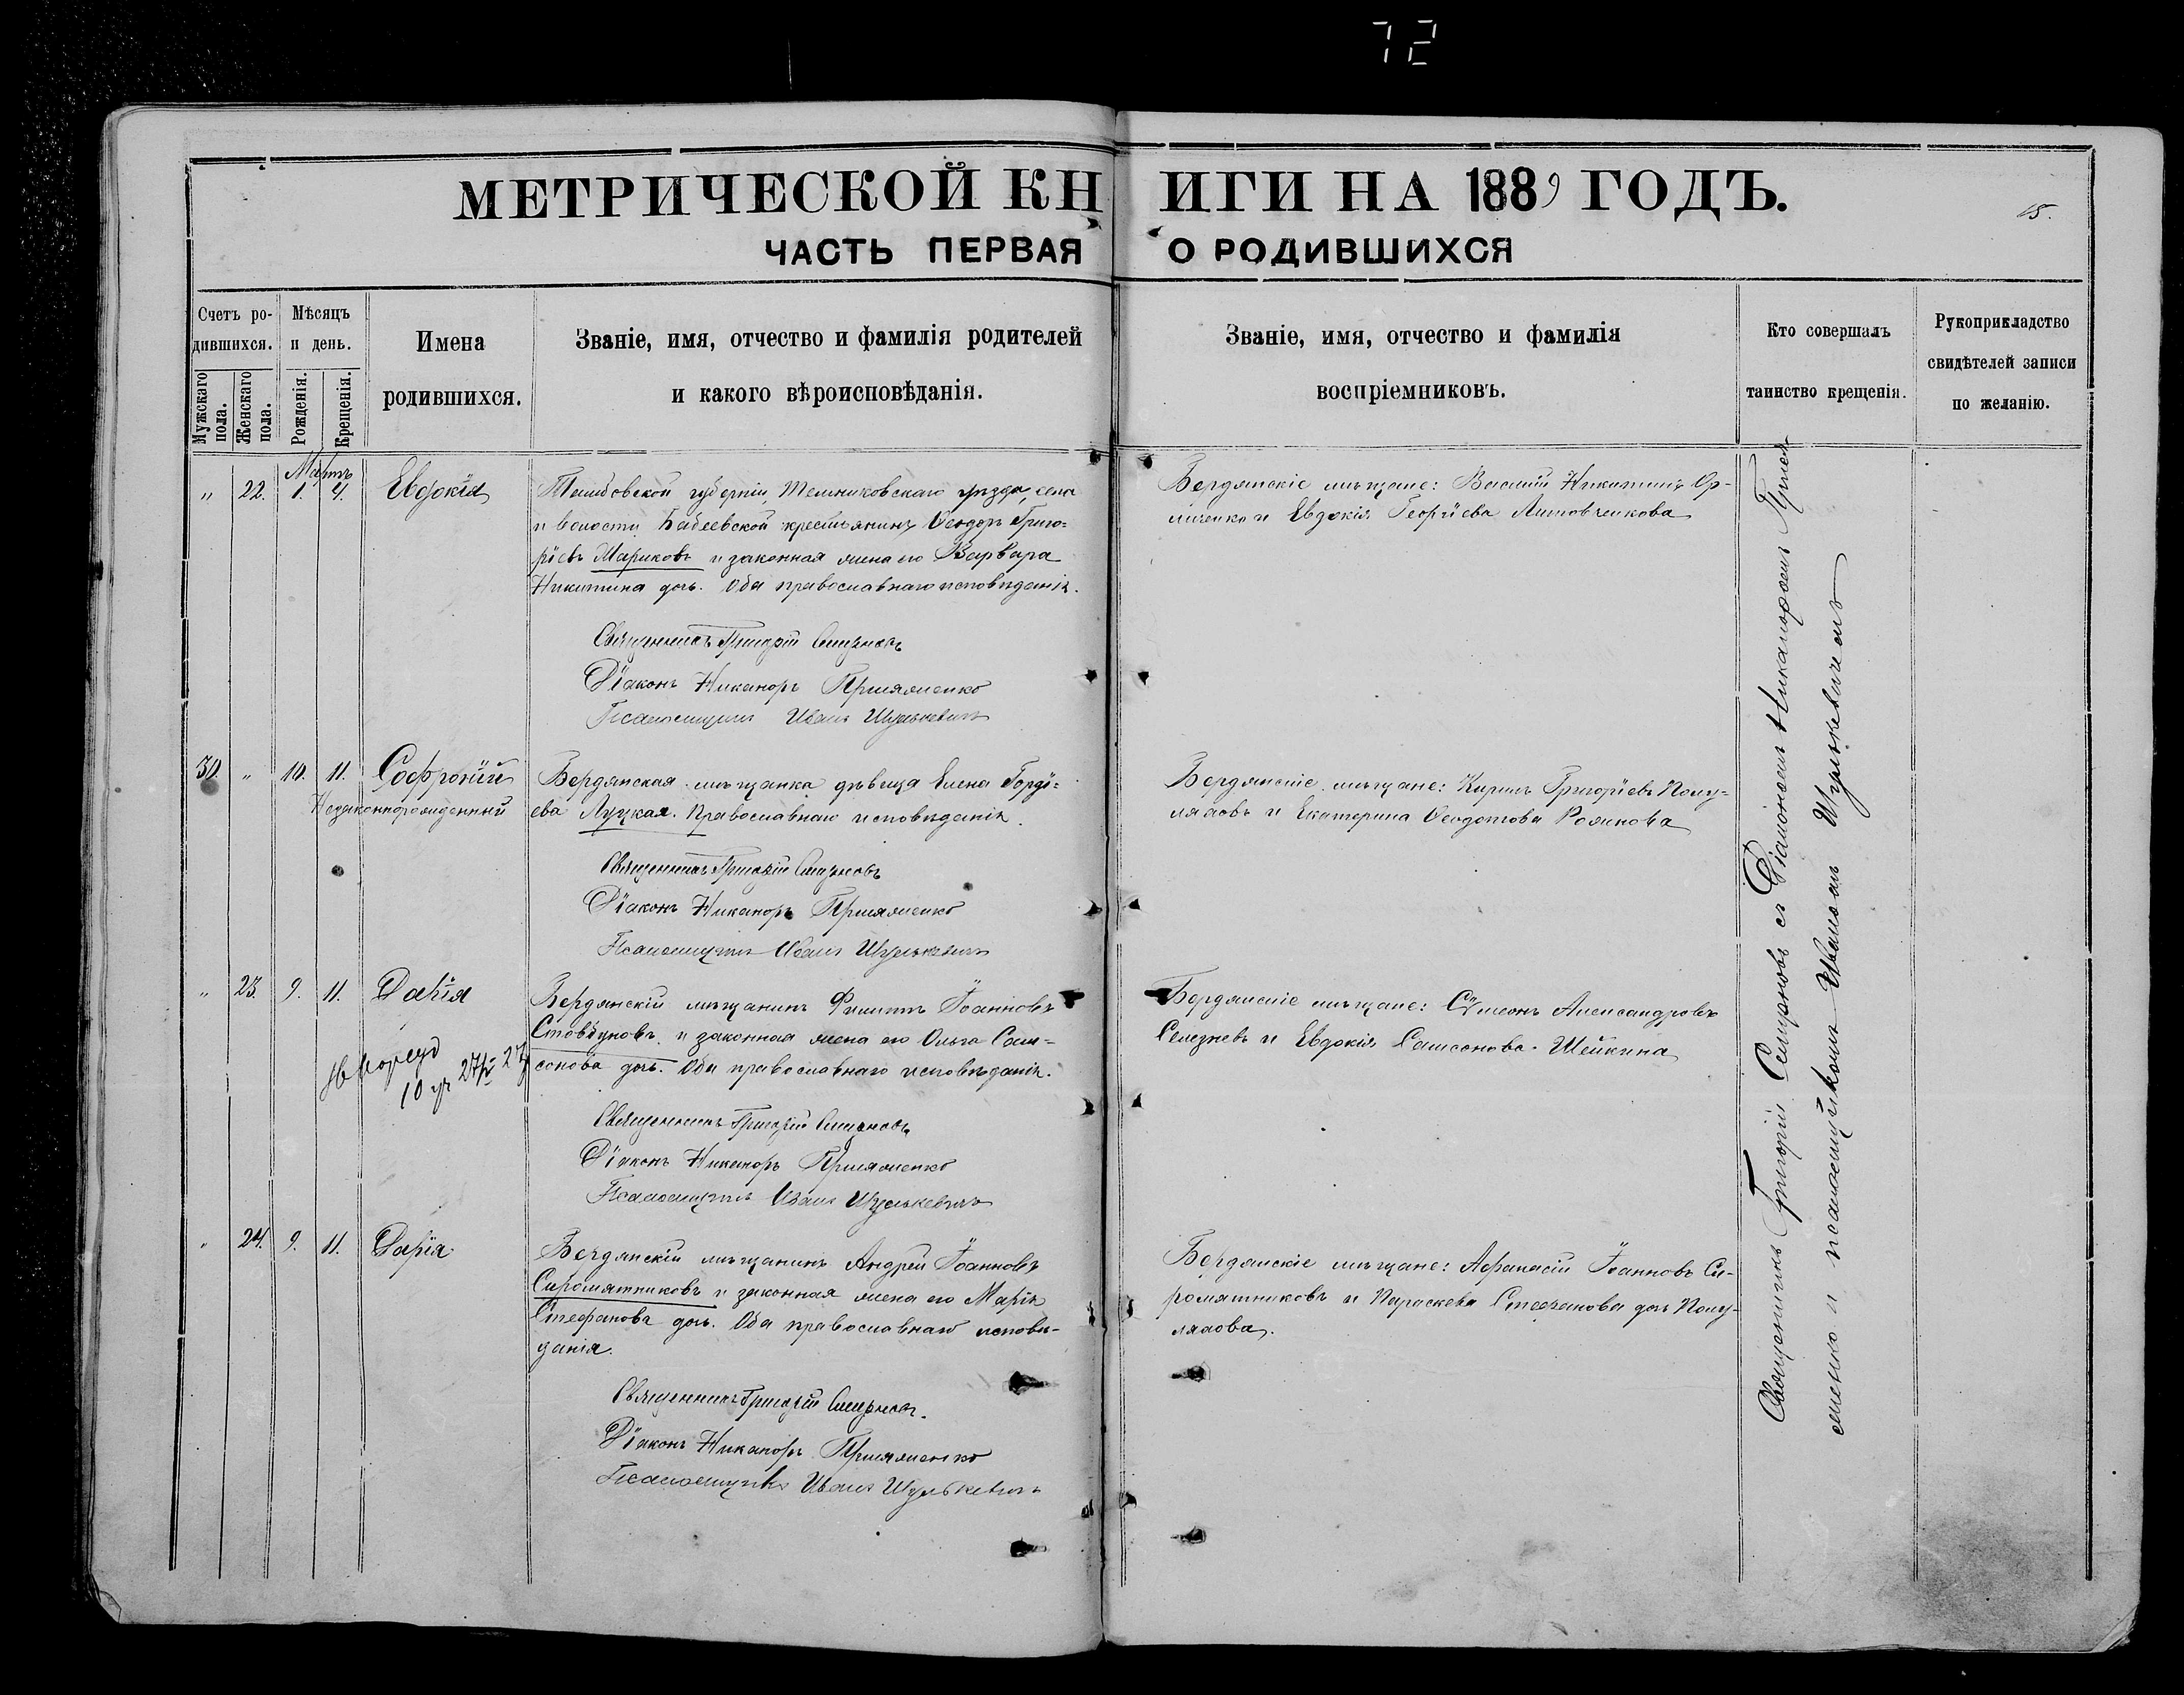 72
МЕТРИЧЕСКОЙ КНИГИ НА 1889 ГОДЪ.
15.
ЧАСТЬ ПЕРВАЯ О РОДИВШИХСЯ
Счетъ родившихся.
Мужскаго пола.
Женскаго пола.
Мѣсяцъ и день.
Рожденія.
Крещенія.
Имена
родившихся.
Званіе, имя, отчество и фамилія родителей
и какого вѣроисповѣданія.
Званіе, имя, отчество и фамилія
воспріемниковъ.
Кто совершалъ
таинство крещенія.
Рукоприкладство
свидѣтелей записи
по желанію.
Мартъ
" 22. 1. 4. Евдокія
Тамбовской губерніи, Темниковскаго уѣзда, села
и волости Бабеевской крестьянинъ Ѳеодоръ Григо-
ріевъ Мариковъ и законная жена его Варвара
Никитина дочь. Оба православнаго исповѣданія.
Священникъ Григорій Смирновъ
Діаконъ Никаноръ
Псаломщикъ Иванъ Шулькевичъ
Бердянскіе мѣщане: Василій Никитинъ Ор-
личенко и Евдокія Георгіева Литовченкова
30. " 10. 11. Софроній
Незаконнорожденный
Бердянская мѣщанка дѣвица Елена Горді-
ева Луцкая. Православнаго исповѣданія.
Священникъ Григорій Смирновъ
Діаконъ Никаноръ
Псаломщикъ Иванъ Шулькевичъ
Бердянскіе мѣщане: Кириллъ Григоріевъ Полу-
ляховъ и Екатерина Ѳеодотова
" 23. 9. 11. Дарія
10
Бердянскій мѣщанинъ Филиппъ Іоанновъ
Стовбуновъ и законная жена его Ольга Сам-
сонова дочь. Оба православнаго исповѣданія.
Священникъ Григорій Смирновъ
Діаконъ Никаноръ
Псаломщикъ Иванъ Шулькевичъ
Бердянскіе мѣщане: Сѵмеонъ Александровъ
Селезневъ и Евдокія Самсонова Шейкина
" 24. 9. 11. Дарія
Бердянскій мѣщанинъ Андрей Іоанновъ
Сиромятниковъ и законная жена его Марія
Стефанова дочь. Оба православнаго исповѣ-
данія.
Священникъ Григорій Смирновъ.
Діаконъ Никаноръ
Псаломщикъ Иванъ Шулькевичъ
Бердянскіе мѣщане: Афанасій Іоанновъ Си-
ромятниковъ и Параскева Стефанова дочь Полу-
ляхова.
Священникъ Григорій Смирновъ съ Діакономъ Никаноромъ
и псаломщикомъ Иваномъ Шулькевичемъ